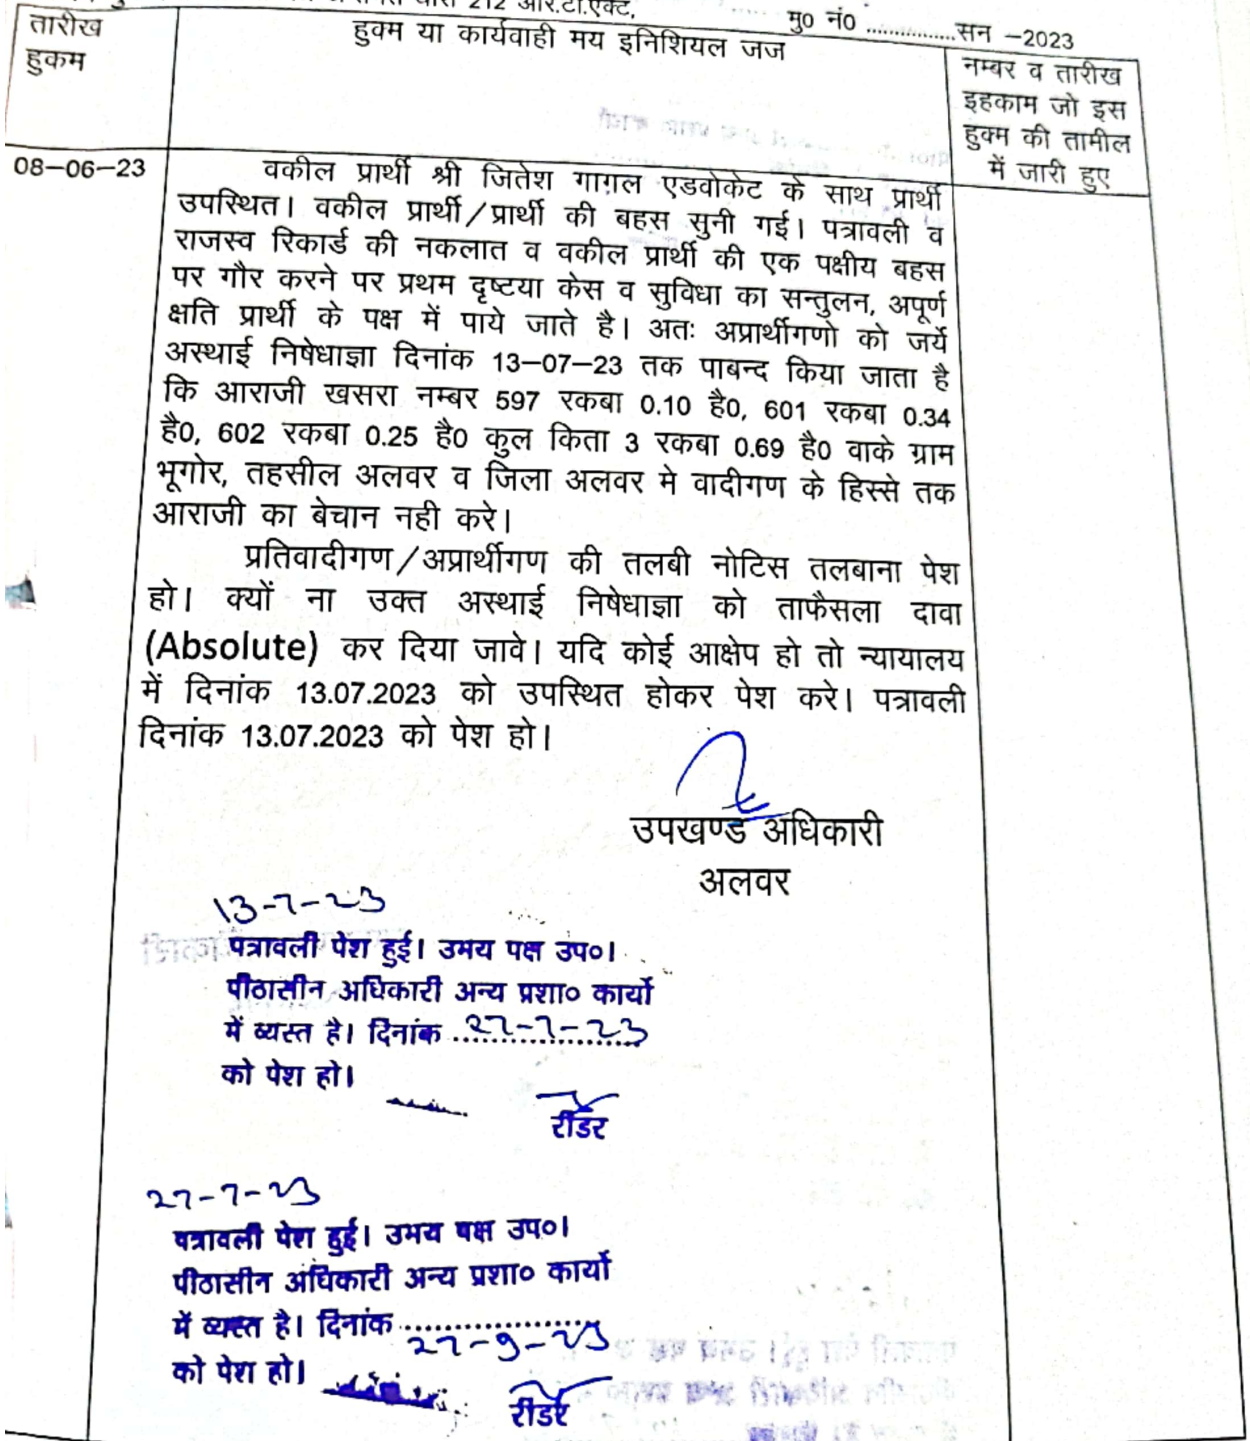 धारा 212 आर.टी.एक्ट,
मु0 नं0 ................सन –2023
तारीख
हुकम
हुक्म या कार्यवाही मय इनिशियल जज
नम्बर व तारीख
इहकाम जो इस
हुक्म की तामील
में जारी हुए
08–06–23
वकील प्रार्थी श्री जितेश गाग़ल एडवोकेट के साथ प्रार्थी
उपस्थित। वकील प्रार्थी/प्रार्थी की बहस सुनी गई। पत्रावली व
राजस्व रिकार्ड की नकलात व वकील प्रार्थी की एक पक्षीय बहस
पर गौर करने पर प्रथम दृष्टया केस व सुविधा का सन्तुलन, अपूर्ण
क्षति प्रार्थी के पक्ष में पाये जाते है। अतः अप्रार्थीगणो को जर्ये
अस्थाई निषेधाज्ञा दिनांक 13–07–23 तक पाबन्द किया जाता है
कि आराजी खसरा नम्बर 597 रकबा 0.10 है0, 601 रकबा 0.34
है0, 602 रकबा 0.25 है0 कुल किता 3 रकबा 0.69 है0 वाके ग्राम
भूगोर, तहसील अलवर व जिला अलवर मे वादीगण के हिस्से तक
आराजी का बेचान नही करे।
प्रतिवादीगण/अप्रार्थीगण की तलबी नोटिस तलबाना पेश
हो। क्यों ना उक्त अस्थाई निषेधाज्ञा को ताफैसला दावा
(Absolute) कर दिया जावे। यदि कोई आक्षेप हो तो न्यायालय
में दिनांक 13.07.2023 को उपस्थित होकर पेश करे। पत्रावली
दिनांक 13.07.2023 को पेश हो।
उपखण्ड अधिकारी
अलवर
13-7-23
पत्रावली पेश हुई। उभय पक्ष उप०।
पीठासीन अधिकारी अन्य प्रशा० कार्यो
में व्यस्त है। दिनांक ..27-7-23
को पेश हो।
रीडर
27-7-23
पत्रावली पेश हुई। उभय पक्ष उप०।
पीठासीन अधिकारी अन्य प्रशा० कार्यो
में व्यस्त है। दिनांक ....................
27-9-23
को पेश हो।
रीडर